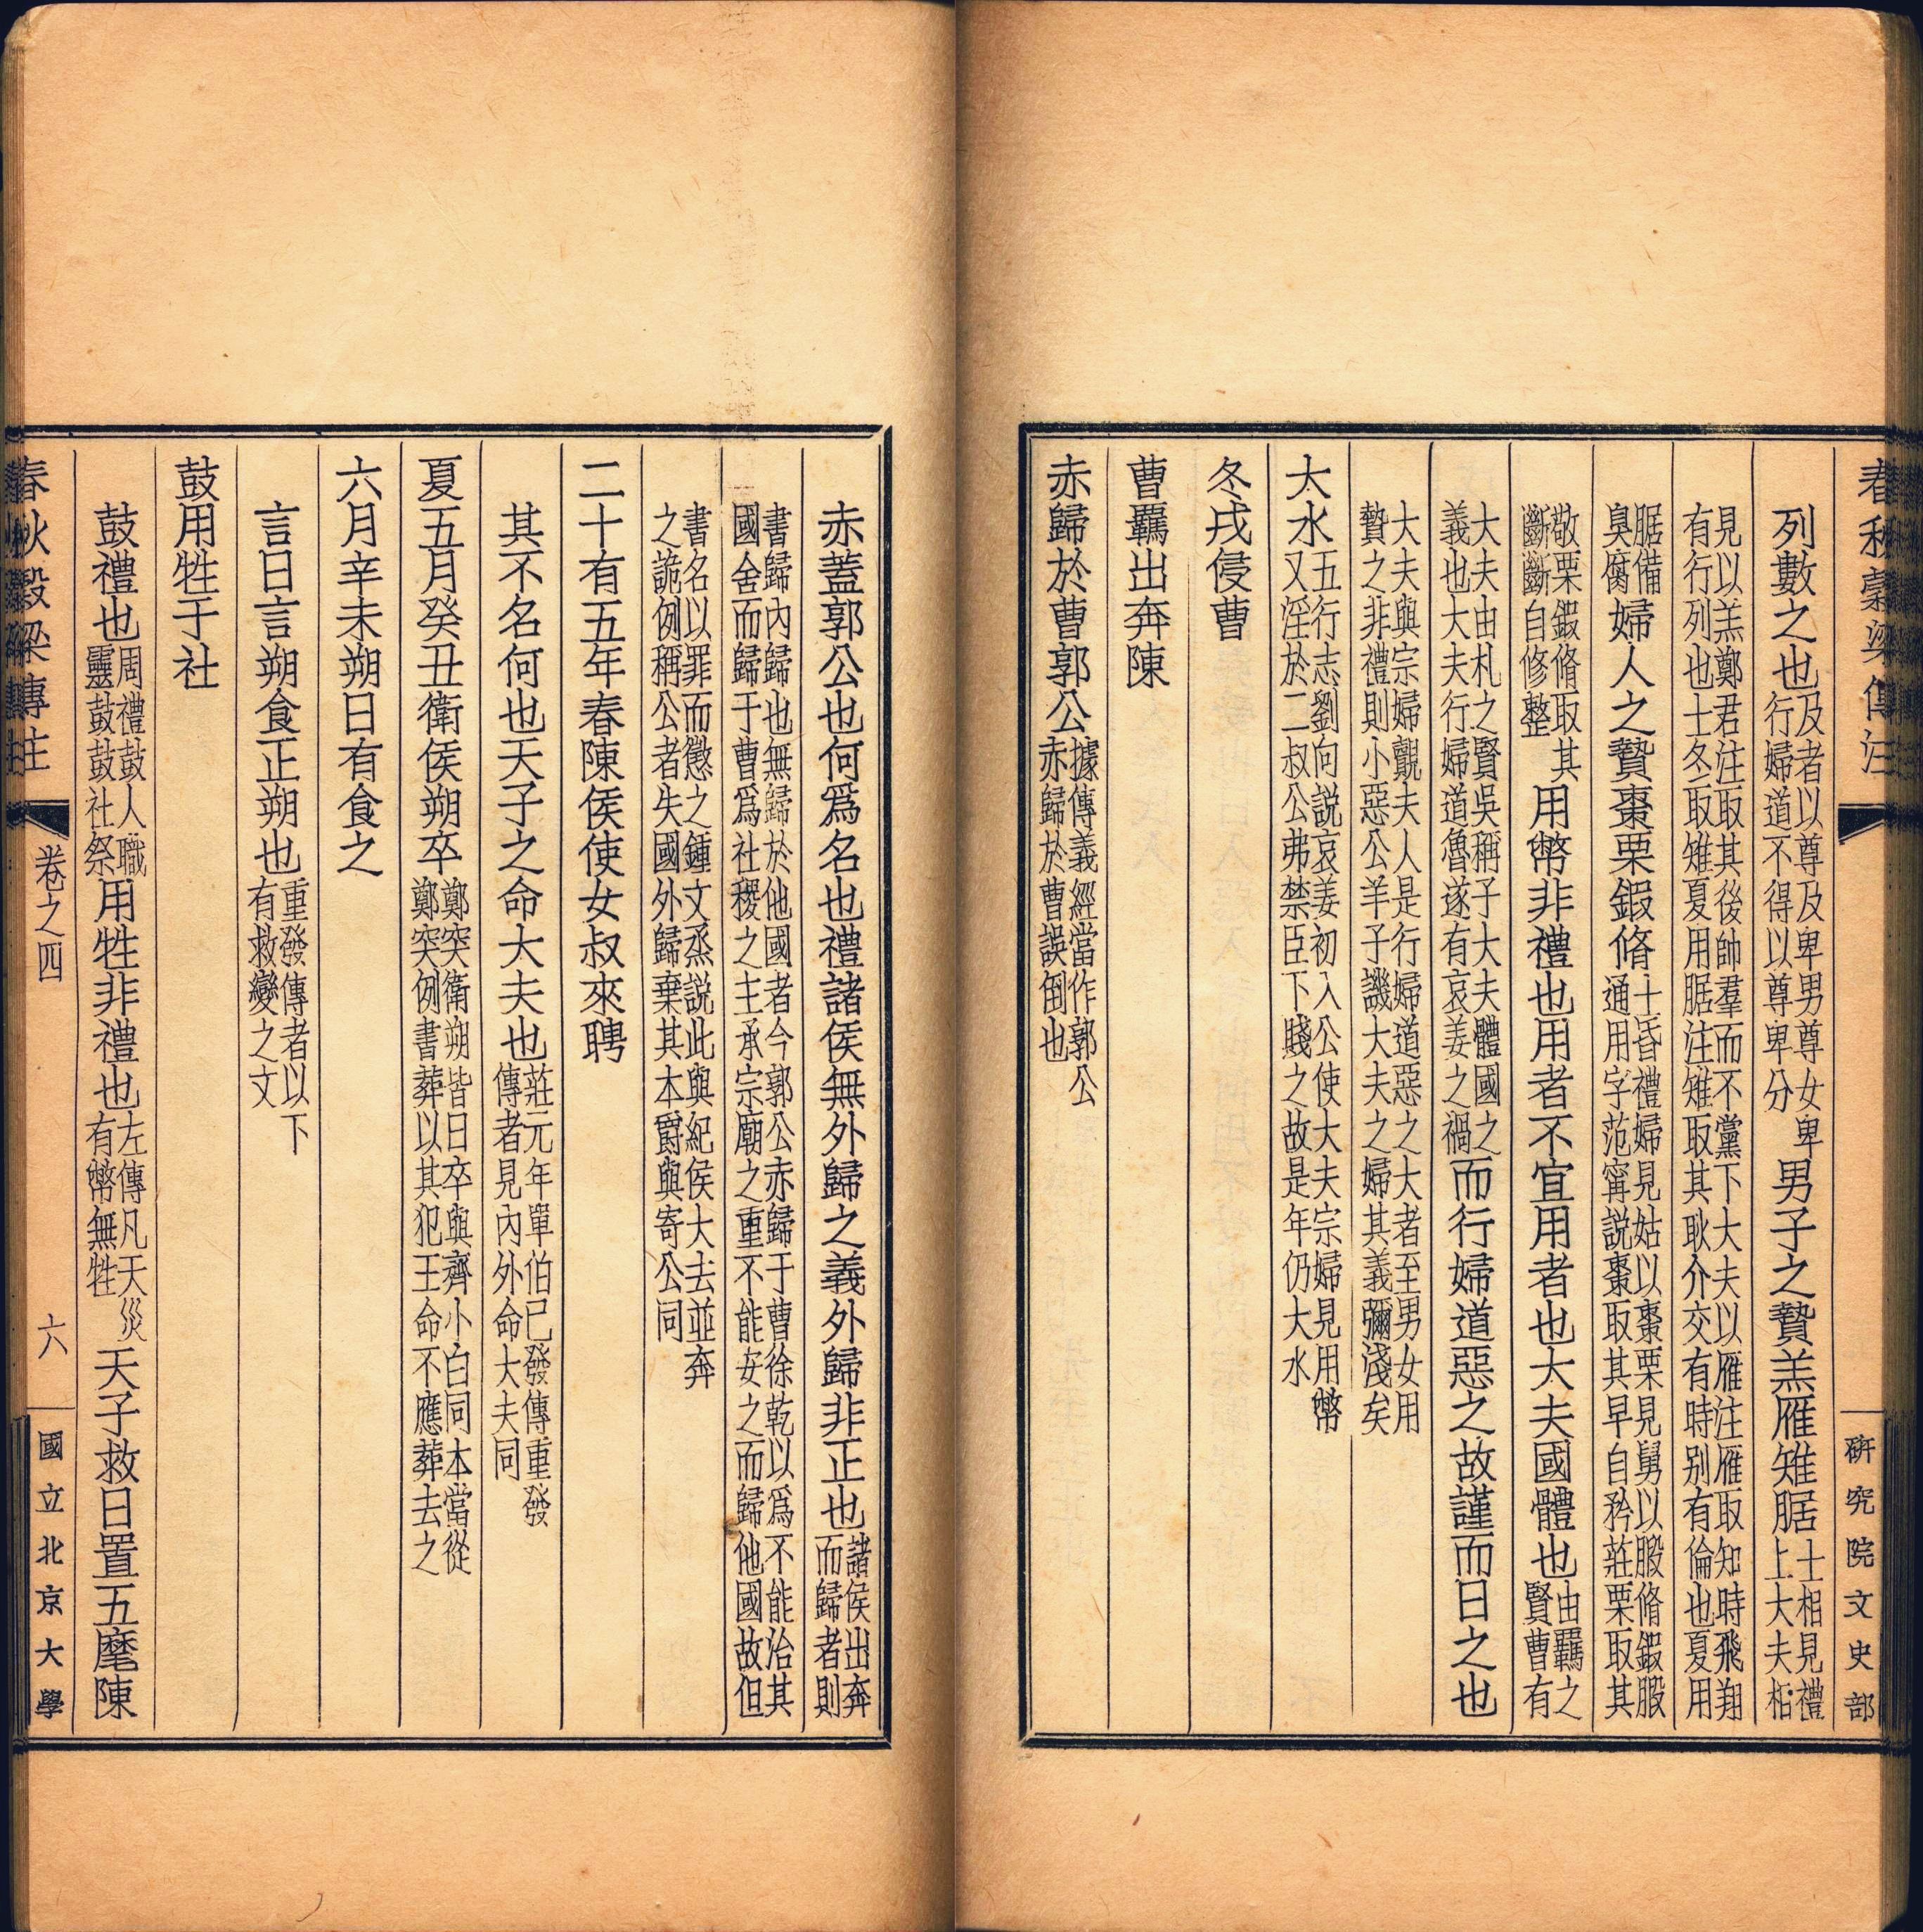 春秋穀梁傳注
研究院文史部
列數之也及者以尊及卑男尊女卑行婦道不得以尊卑分男子之贄羔雁雉腒士相見禮上大夫相
見以羔鄭君注取其後帥羣而不黨下大夫以雁注雁取知時飛翔有行列也士冬取雉夏用腒注雉取其耿介交有時别有倫也夏用
腒備臭腐婦人之贄棗栗鍛脩士昏禮婦見姑以棗栗見舅以腶脩鍛腶通用字范寗説棗取其早自矜莊栗取其
敬栗鍛脩取其斷斷自修整用幣非禮也用者不宜用者也大夫國體也由羈之賢曹有
大夫由札之賢吳稱子大夫體國之義也大夫行婦道魯遂有哀姜之禍而行婦道惡之故謹而日之也
大夫與宗婦覿夫人是行婦道惡之大者至男女用贄之非禮則小惡公羊子譏大夫之婦其義彌淺矣
大水五行志劉向説哀姜初入公使大夫宗婦見用幣又淫於二叔公弗禁臣下賤之故是年仍大水
冬戎侵曹
曹羈出奔陳
赤歸於曹郭公據傳義經當作郭公赤歸於曹誤倒也
赤蓋郭公也何爲名也禮諸侯無外歸之義外歸非正也諸侯出奔而歸者則
書歸內歸也無歸於他國者今郭公赤歸于曹徐乾以爲不能治其國舍而歸于曹爲社稷之主承宗廟之重不能安之而歸他國故但
書名以罪而懲之鍾文烝説此與紀侯大去並奔之詭例稱公者失國外歸棄其本爵與寄公同
二十有五年春陳侯使女叔來聘
其不名何也天子之命大夫也莊元年單伯已發傳重發傳者見內外命大夫同
夏五月癸丑衛侯朔卒鄭突衛朔皆日卒與齊小白同本當從鄭突例書葬以其犯王命不應葬去之
六月辛未朔日有食之
言日言朔食正朔也重發傳者以下有救變之文
鼓用牲于社
鼓禮也周禮鼓人職靈鼓鼓社祭用牲非禮也左傳凡天災有幣無牲天子救日置五麾陳
春秋穀梁傳注
卷之四
六
國立北京大學